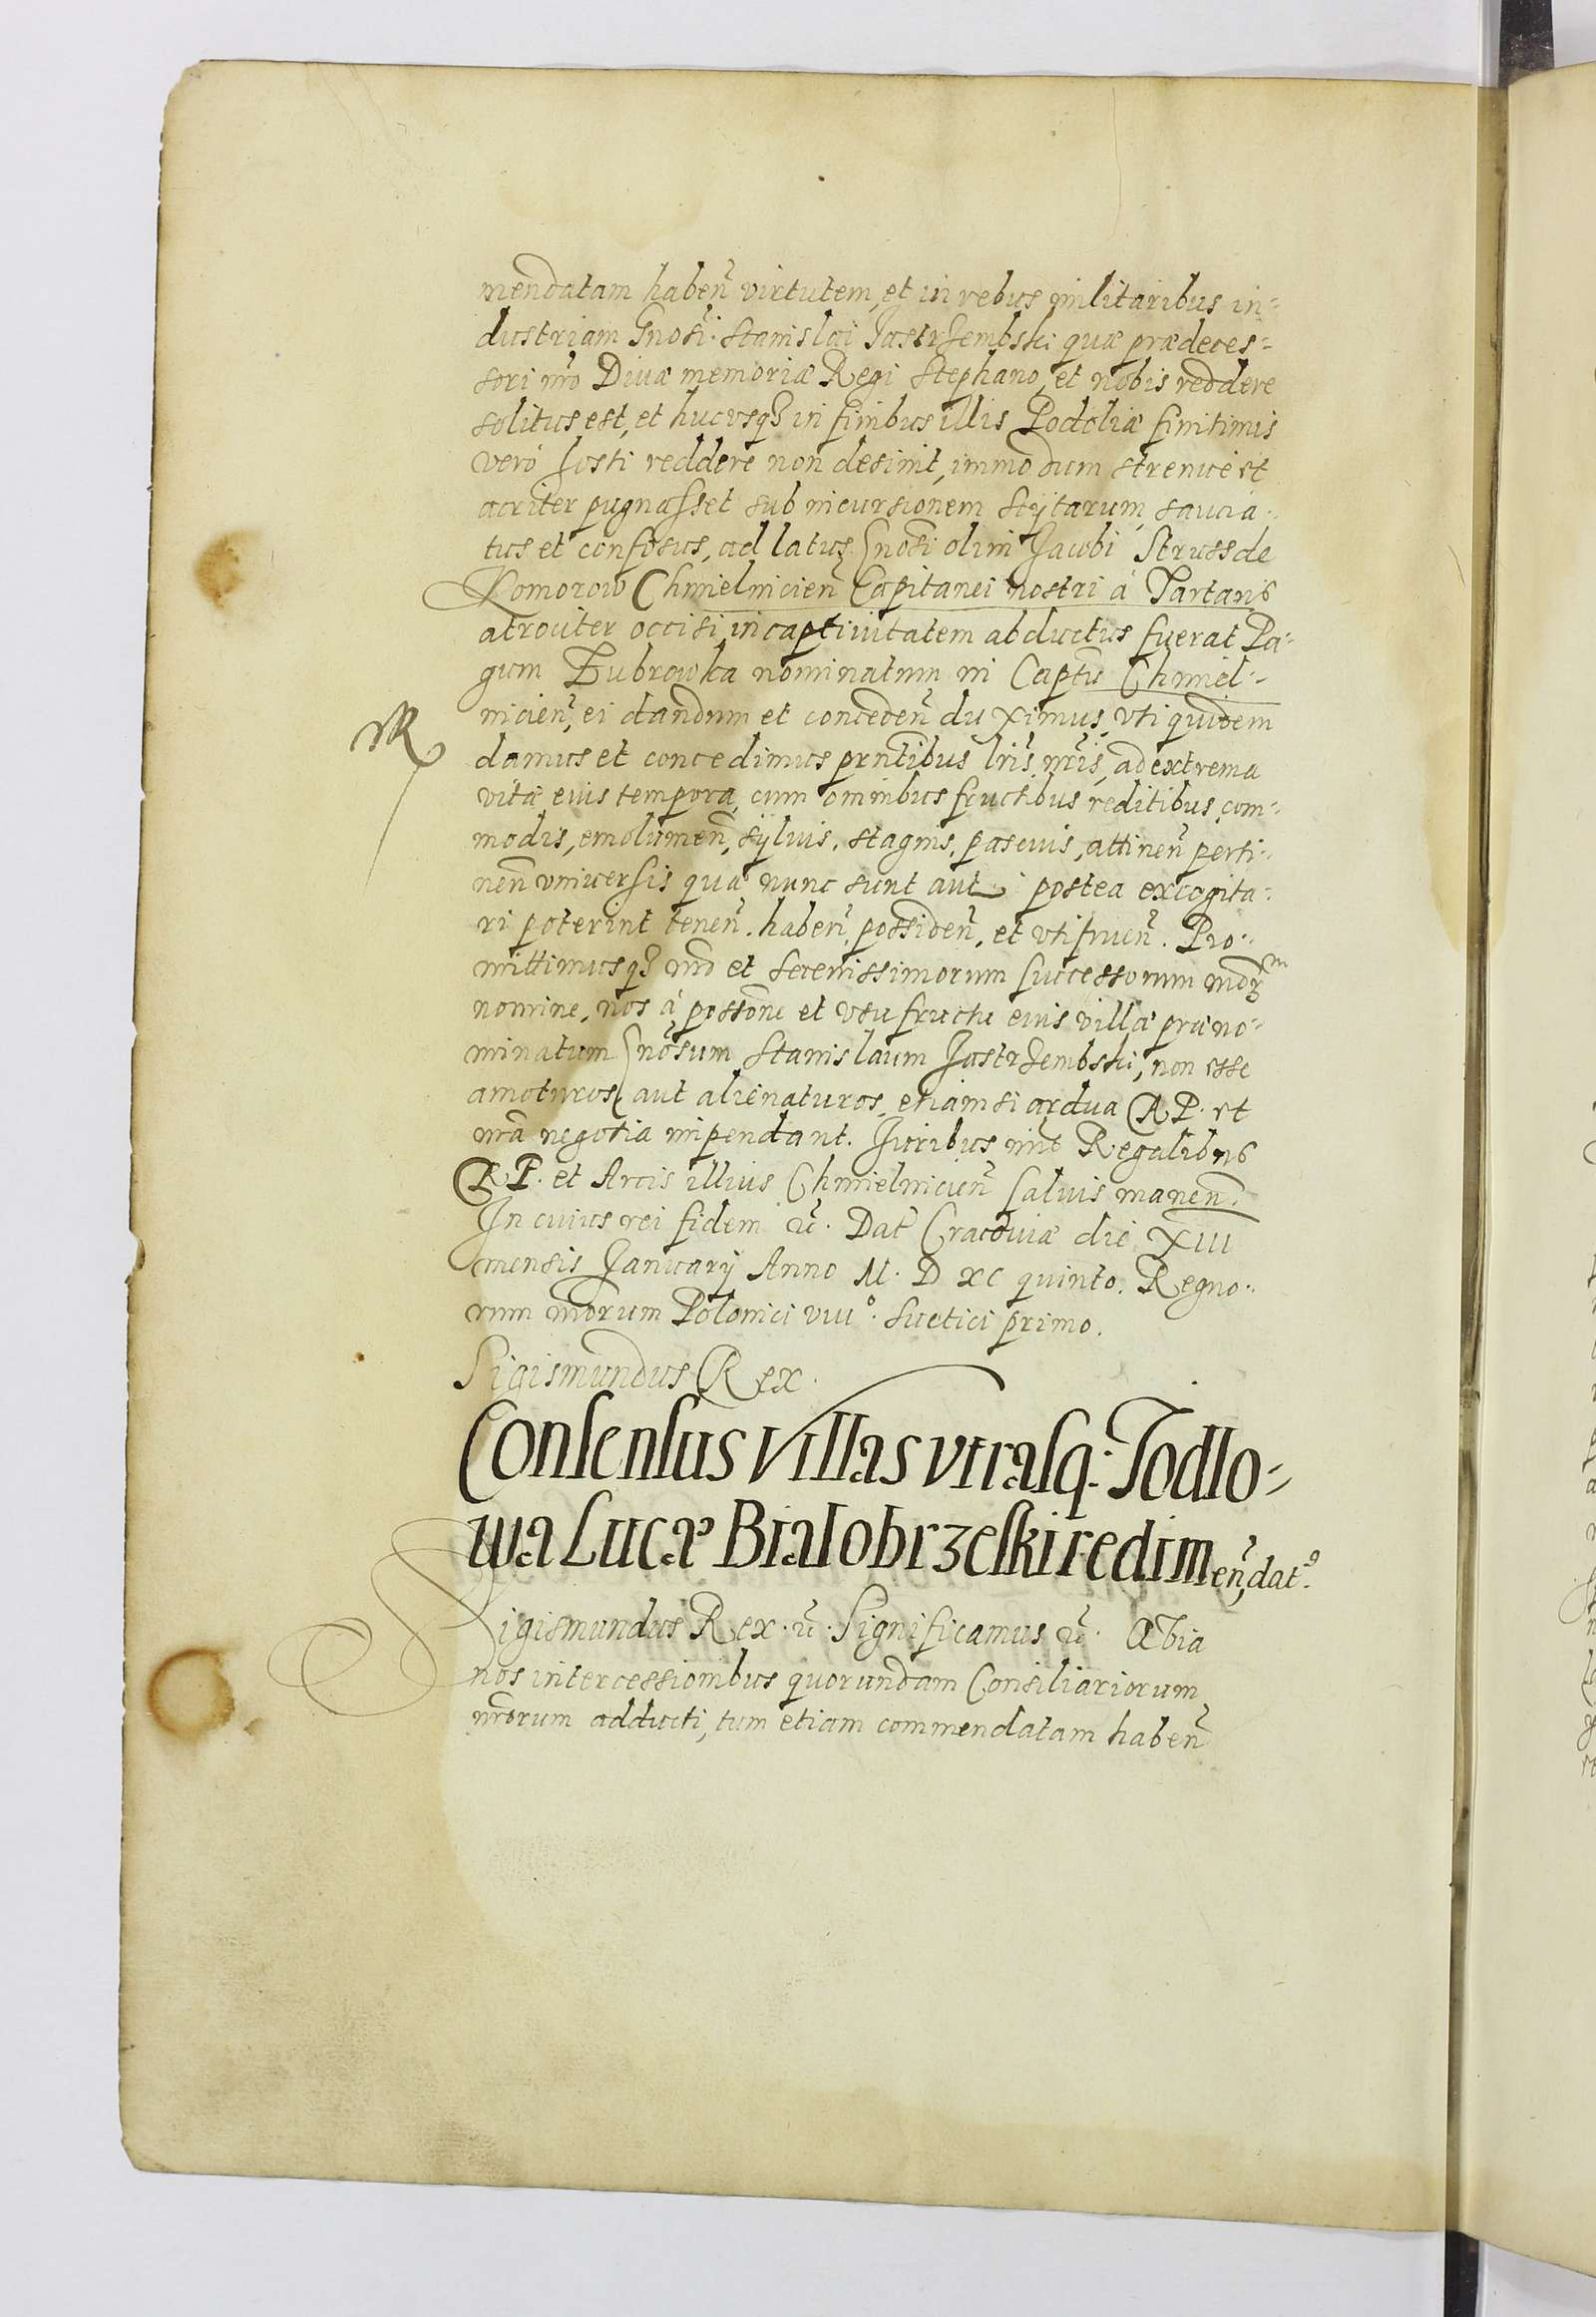 mendatam haben̄ virtutem, et in rebus militaribus in-
dustriam Gnosi. Stanislai Jastrsembski quæ prædeces-
sori nr̄o Diuæ memoriæ Regi Stephano, et nobis reddere
solitus est, et hucusq₃ in finibus illis Podoliæ finitimis
vero hosti reddere non desinit, immo dum strenue et
acriter pugnasset sub incursionem Scÿtarum, saucia-
tus et confosus, ad latus Gnosi olim Jacobi Struss de
Komorow Chmielnicien̄ Capitanei nostri à Tartaris
atrociter occisi, in captiuitatem abductus fuerat Pa-
gum Bubrowka nominatum in Captū Chmiel-
nicien̄, ei dandum et conceden̄ duximus, vti quidem
damus et concedimus prn̄tibus lr̄is nr̄is, ad extrema
vitæ eius tempora, cum omnibus fructibus reditibus, com-
modis, emolumen̄, sÿluis, stagnis, pascuis, attinen̄ perti-
nen̄ vniuersis quæ nunc sunt aut postea excogita-
ri poterint tenen̄. haben̄, possiden̄, et vtifruen̄. Pro-
mittimusq₃ nr̄o et Serenissimorum successorum nr̄orm
nomine, nos à possōne et vsufructu eius villæ præno-
minatum Gnōsum Stanislaum Jastrsembski, non esse
amoturos, aut alienaturos, etiamsi ardua R.P. et
nr̄a negotia impendant. Juribus nīlt Regalibus
R.P. et Arcis illius Chmielnicien̄ saluis manen̄.
In cuius rei fidem &c. Dat̄ Cracouiæ die XIII
mensis Januarÿ Anno M. D XC quinto. Regno-
rum nr̄orum Polonici VIII°. Suetici primo.
Sigismundus Rex.
Consensus villas vtrasq. Jodlo-
wa Lucæ Bialobrzeski redimen̄, dat⁹.
Sigismundus Rex. &c. Significamus &c. Quia
nos intercessionibus quorundam Consiliariorum
nr̄orum adducti, tum etiam commendatam haben̄